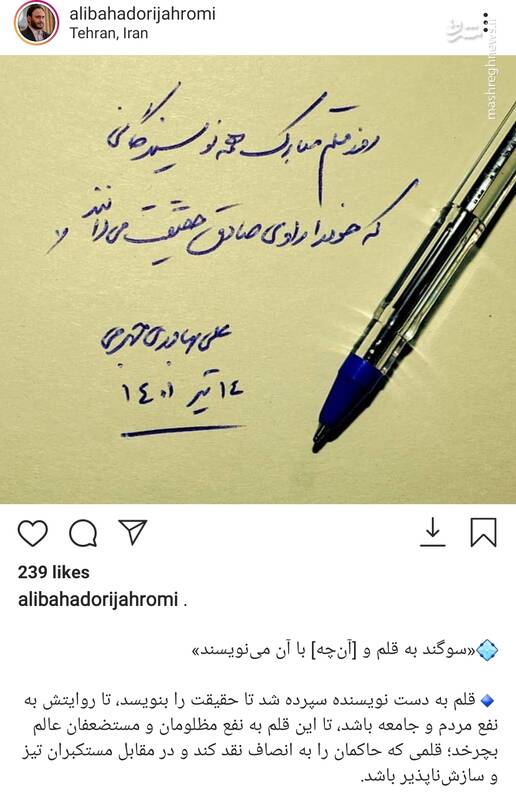 alibahadorijahromi
Tehran, Iran
مشرق
mashreghnews.ir
روز قلم مبارک همه نویسندگانی
که خود را راوی صادق حقیقت می‌دانند
علی بهادری جهرمی
۱۴ تیر ۱۴۰۱
239 likes
alibahadorijahromi .
«سوگند به قلم و [آن‌چه] با آن می‌نویسند»
قلم به دست نویسنده سپرده شد تا حقیقت را بنویسد، تا روایتش به
نفع مردم و جامعه باشد، تا این قلم به نفع مظلومان و مستضعفان عالم
بچرخد؛ قلمی که حاکمان را به انصاف نقد کند و در مقابل مستکبران تیز
و سازش‌ناپذیر باشد.